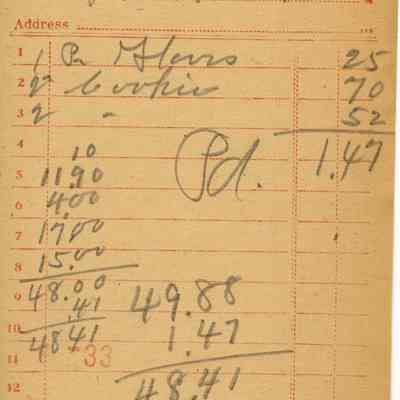 Address
1 1 Pr Gloves 25
2 2 Cookies 70
3 2 " 52
4 Pd. 1.47
10
5 11.90
6 4.00
7 17.00
8 15.00
9 48.00 49.88
.41 1.47
10 48.41 48.41
11 33
12